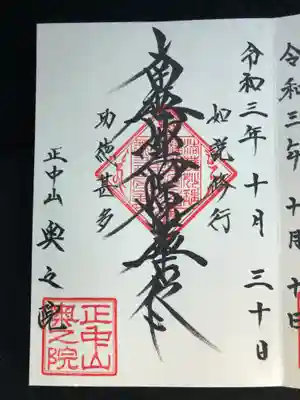 令和三年十月十日
令和三年十月三十日
如説修行
南無妙法蓮華経
功徳甚多
正中山 奥之院
正中山
奥之院